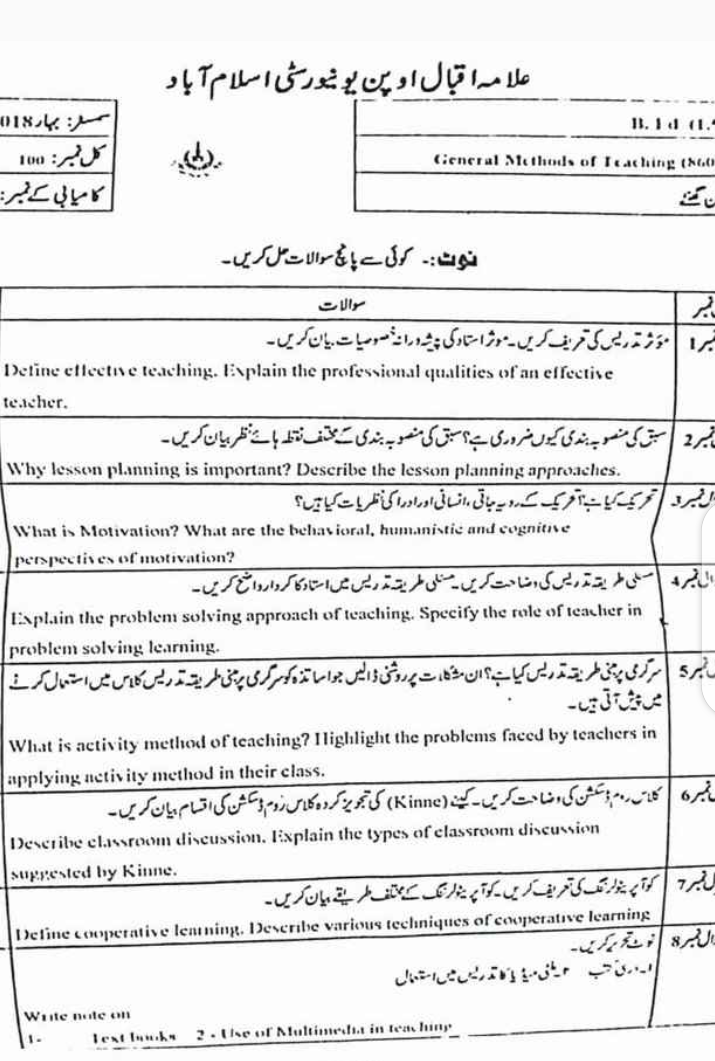 علامہ اقبال اوپن یونیورسٹی اسلام آباد
سمسٹر: بہار 018
B. Ed (1.
کل نمبر: 100
General Methods of Teaching (860
کامیابی کے نمبر:
نوٹ:- کوئی سے پانچ سوالات حل کریں۔
سوالات
نمبر
نمبر 1
مؤثر تدریس کی تعریف کریں۔ موثر استاد کی پیشہ ورانہ خصوصیات بیان کریں۔
Define effective teaching. Explain the professional qualities of an effective
teacher.
نمبر 2
سبق کی منصوبہ بندی کیوں ضروری ہے؟ سبق کی منصوبہ بندی کے مختلف نقطہ ہائے نظر بیان کریں۔
Why lesson planning is important? Describe the lesson planning approaches.
نمبر 3
تحریک کیا ہے؟ تحریک کے رویہ جاتی، انسانی اور ادراکی نظریات کیا ہیں؟
What is Motivation? What are the behavioral, humanistic and cognitive
perspectives of motivation?
نمبر 4
مسئلی طریقہ تدریس کی وضاحت کریں۔ مسئلی طریقہ تدریس میں استاد کا کردار واضح کریں۔
Explain the problem solving approach of teaching. Specify the role of teacher in
problem solving learning.
نمبر 5
سرگرمی پر مبنی طریقہ تدریس کیا ہے؟ ان مشکلات پر روشنی ڈالیں جو اساتذہ کو سرگرمی پر مبنی طریقہ تدریس کلاس میں استعمال کرنے
میں پیش آتی ہیں۔
What is activity method of teaching? Highlight the problems faced by teachers in
applying activity method in their class.
نمبر 6
کلاس روم ڈسکشن کی وضاحت کریں۔ کینے (Kinne) کی تجویز کردہ کلاس رُوم ڈسکشن کی اقسام بیان کریں۔
Describe classroom discussion. Explain the types of classroom discussion
suggested by Kinne.
نمبر 7
کوآپریٹو لرننگ کی تعریف کریں۔ کوآپریٹو لرننگ کے مختلف طریقے بیان کریں۔
Define cooperative learning. Describe various techniques of cooperative learning
نمبر 8
نوٹ تحریر کریں۔
۱۔ درسی کتب ۲۔ ملٹی میڈیا کا تدریس میں استعمال
Write note on
1- Text books 2 - Use of Multimedia in teaching